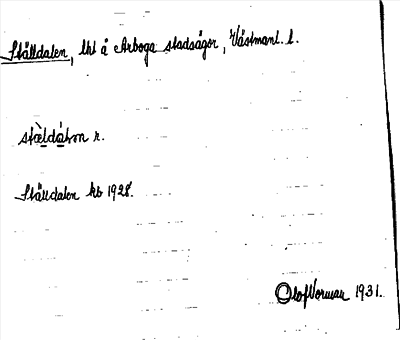 Ställdalen, lht å Arboga stadsägor, Västmanl. l.
stæ̀ldàlen r.
Ställdalen kb 1928.
Olof Norman 1931.